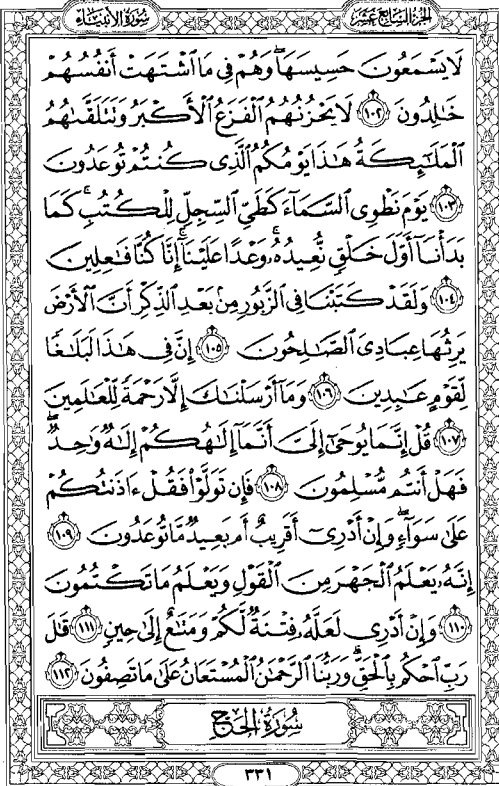 سورة الأنبياء
الجزء السابع عشر
لَا يَسْمَعُونَ حَسِيسَهَا ۖ وَهُمْ فِي مَا ٱشْتَهَتْ أَنفُسُهُمْ
خَٰلِدُونَ ١٠٢ لَا يَحْزُنُهُمُ ٱلْفَزَعُ ٱلْأَكْبَرُ وَتَتَلَقَّىٰهُمُ
ٱلْمَلَٰٓئِكَةُ هَٰذَا يَوْمُكُمُ ٱلَّذِى كُنتُمْ تُوعَدُونَ
١٠٣ يَوْمَ نَطْوِى ٱلسَّمَآءَ كَطَىِّ ٱلسِّجِلِّ لِلْكُتُبِ ۚ كَمَا
بَدَأْنَآ أَوَّلَ خَلْقٍ نُّعِيدُهُۥ ۚ وَعْدًا عَلَيْنَآ ۚ إِنَّا كُنَّا فَٰعِلِينَ
١٠٤ وَلَقَدْ كَتَبْنَا فِى ٱلزَّبُورِ مِنۢ بَعْدِ ٱلذِّكْرِ أَنَّ ٱلْأَرْضَ
يَرِثُهَا عِبَادِىَ ٱلصَّٰلِحُونَ ١٠٥ إِنَّ فِى هَٰذَا لَبَلَٰغًا
لِّقَوْمٍ عَٰبِدِينَ ١٠٦ وَمَآ أَرْسَلْنَٰكَ إِلَّا رَحْمَةً لِّلْعَٰلَمِينَ
١٠٧ قُلْ إِنَّمَا يُوحَىٰٓ إِلَىَّ أَنَّمَآ إِلَٰهُكُمْ إِلَٰهٌ وَٰحِدٌ ۖ
فَهَلْ أَنتُم مُّسْلِمُونَ ١٠٨ فَإِن تَوَلَّوْا۟ فَقُلْ ءَاذَنتُكُمْ
عَلَىٰ سَوَآءٍ ۖ وَإِنْ أَدْرِىٓ أَقَرِيبٌ أَم بَعِيدٌ مَّا تُوعَدُونَ ١٠٩
إِنَّهُۥ يَعْلَمُ ٱلْجَهْرَ مِنَ ٱلْقَوْلِ وَيَعْلَمُ مَا تَكْتُمُونَ
١١٠ وَإِنْ أَدْرِى لَعَلَّهُۥ فِتْنَةٌ لَّكُمْ وَمَتَٰعٌ إِلَىٰ حِينٍ ١١١ قَٰلَ
رَبِّ ٱحْكُم بِٱلْحَقِّ ۗ وَرَبُّنَا ٱلرَّحْمَٰنُ ٱلْمُسْتَعَانُ عَلَىٰ مَا تَصِفُونَ ١١٢
سُورَةُ الحَجّ
٣٣١